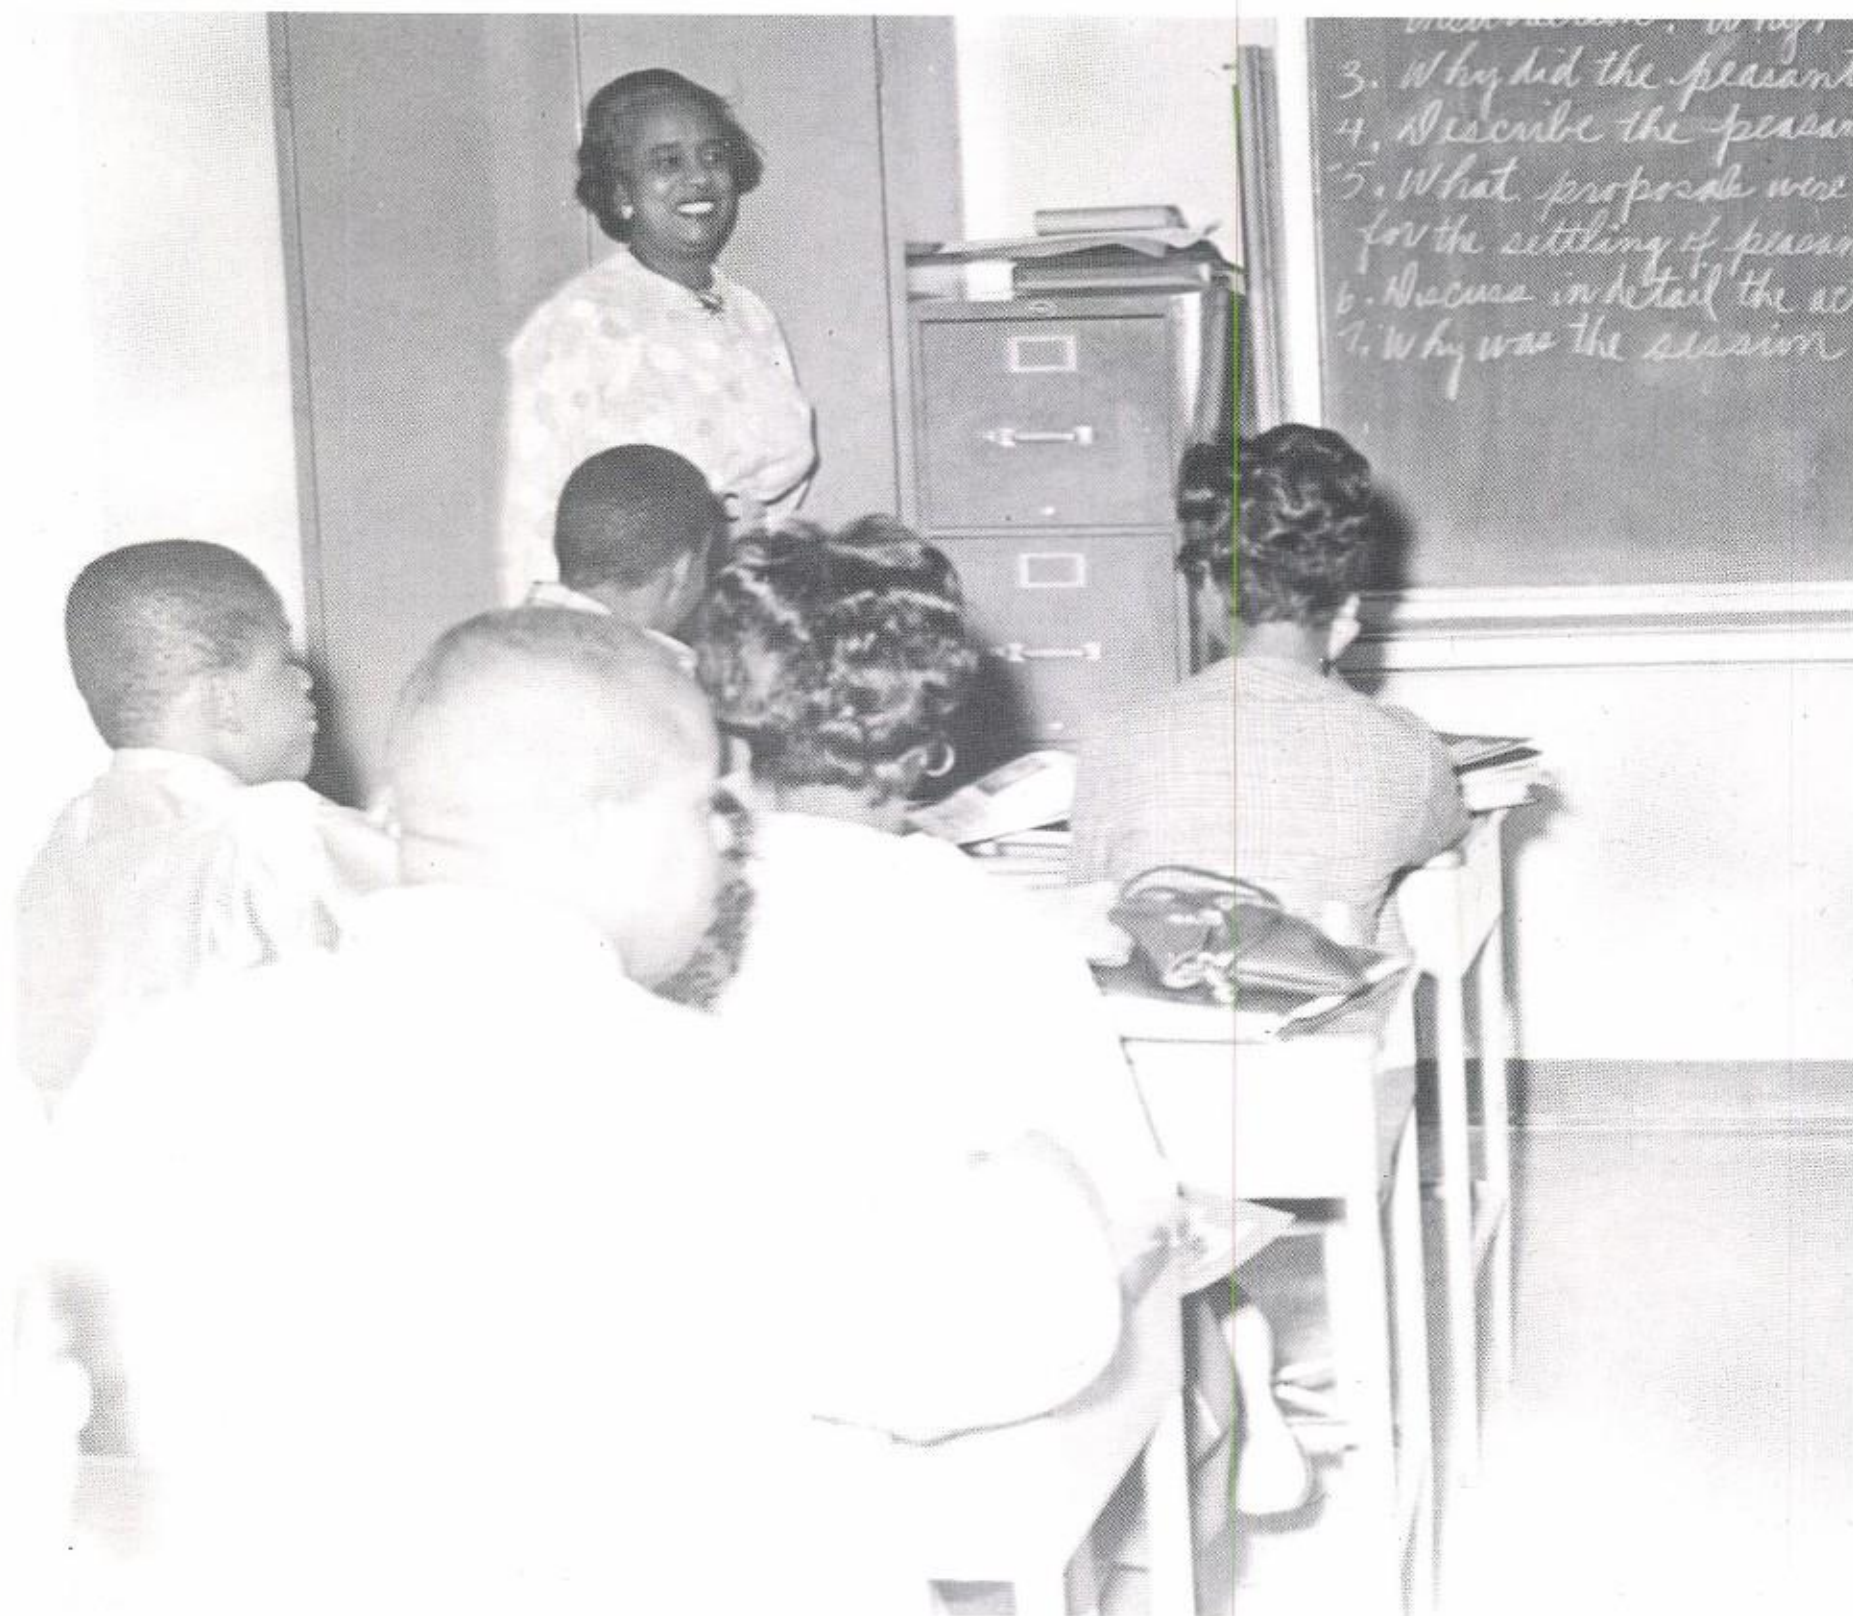 Why?
3. Why did the peasant
4. Describe the peasan
5. What proposals were
for the settling of peasan
6. Discuss in detail the ac
7. Why was the session